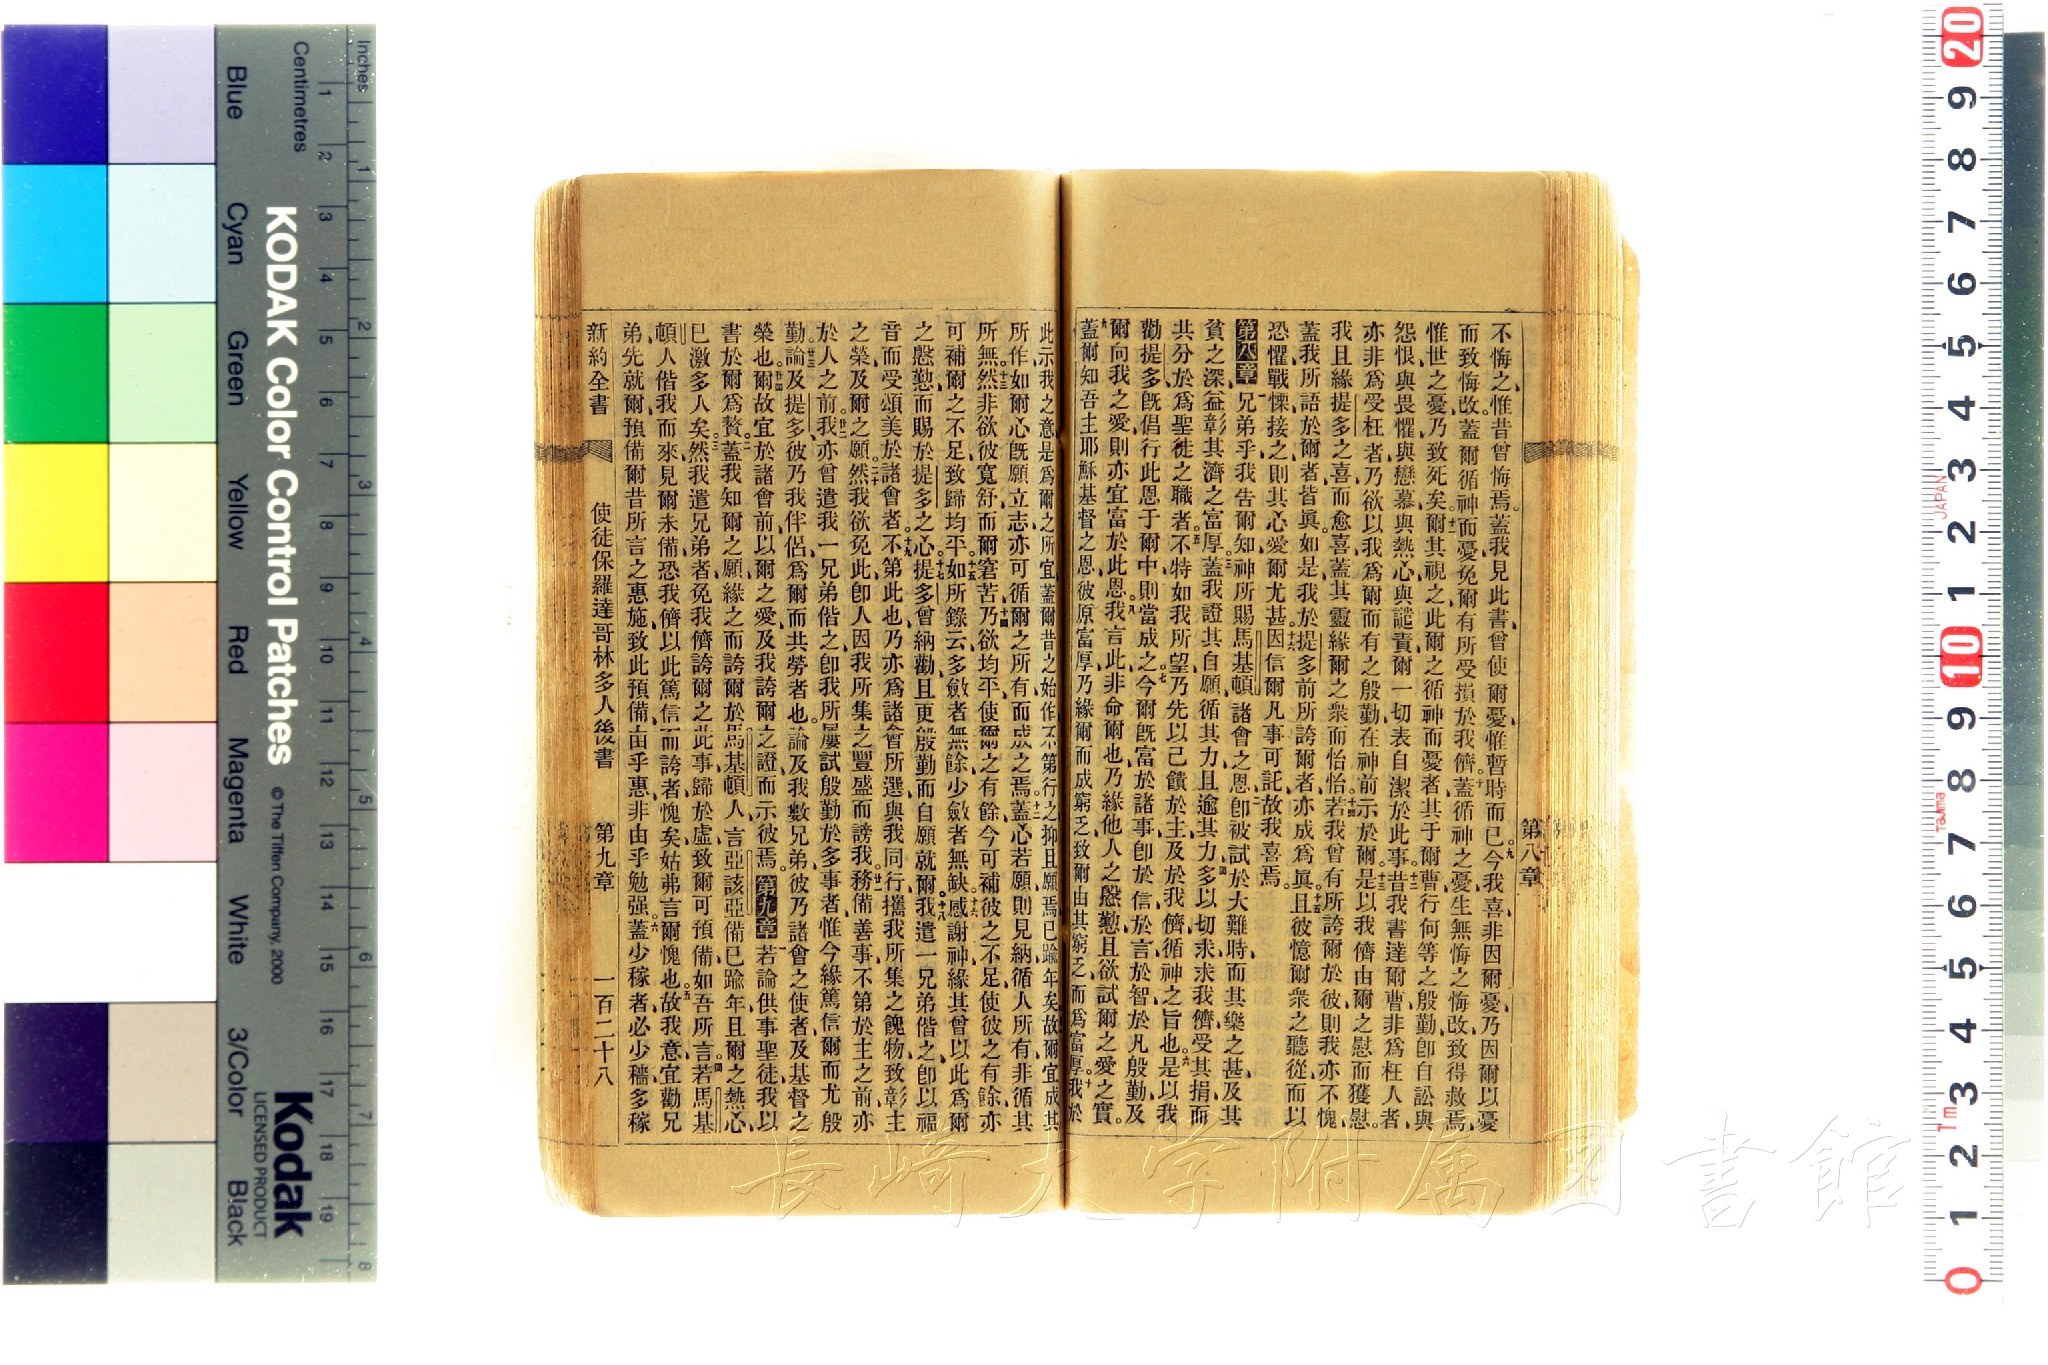 不悔之惟昔曾悔焉。蓋我見此書曾使爾憂惟暫時而已。九今我喜非因爾憂乃因爾以憂
而致悔改。蓋爾循神而憂免爾有所受損於我儕。十蓋循神之憂生無悔之悔改致得救焉
惟世之憂乃致死矣。十一爾其視之此爾之循神而憂者其于爾曹行何等之殷勤卽自訟與
怨恨與畏懼與戀慕與熱心與譴責爾一切表自潔於此事。十二昔我書達爾曹非爲枉人者
亦非爲受枉者乃欲以我爲爾而有之殷勤在神前示於爾。十三是以我儕由爾之慰而獲慰。
我且緣提多之喜而愈喜蓋其靈緣爾之衆而怡怡。十四若我曾有所誇爾於彼則我亦不愧
蓋我所語於爾者皆眞。如是我於提多前所誇爾者亦成爲眞。十五且彼憶爾衆之聽從而以
恐懼戰慄接之則其心愛爾尤甚。十六因信爾凡事可託故我喜焉。
第八章 一兄弟乎我告爾知神所賜馬基頓諸會之恩。二卽被試於大難時而其樂之甚及其
貧之深益彰其濟之富厚。三蓋我證其自願循其力且逾其力。四多以切求求我儕受其捐而
共分於爲聖徒之職者。五不特如我所望乃先以己饋於主及於我儕循神之旨也。六是以我
勸提多既倡行此恩于爾中則當成之。七今爾既富於諸事卽於信於言於智於凡殷勤及
爾向我之愛則亦宜富於此恩。八我言此非命爾也乃緣他人之慇懃且欲試爾之愛之實。
九蓋爾知吾主耶穌基督之恩彼原富厚乃緣爾而成窮乏致爾由其窮乏而爲富厚。十我於
第八章
此示我之意是爲爾之所宜蓋爾昔之始作不第行之抑且願焉已踰年矣故爾宜成其
所作如爾心既願立志亦可循爾之所有而成之焉。十二蓋心若願則見納循人所有非循其
所無。十三然非欲彼寬舒而爾窘苦。十四乃欲均平使爾之有餘今可補彼之不足使彼之有餘亦
可補爾之不足致歸均平。十五如所錄云多斂者無餘少斂者無缺。十六感謝神緣其曾以此爲爾
之慇懃而賜於提多之心。十七提多曾納勸且更殷勤而自願就爾。十八我遣一兄弟偕之卽以福
音而受頌美於諸會者。十九不第此也乃亦爲諸會所選與我同行攜我所集之餽物致彰主
之榮及爾之願。二十然我欲免此卽人因我所集之豐盛而謗我。廿一務備善事不第於主之前亦
於人之前。廿二我亦曾遣我一兄弟偕之卽我所屢試殷勤於多事者惟今緣篤信爾而尤殷
勤。廿三論及提多彼乃我伴侶爲爾而共勞者也論及我數兄弟彼乃諸會之使者及基督之
榮也。廿四爾故宜於諸會前以爾之愛及我誇爾之證而示彼焉。第九章 一若論供事聖徒我以
書於爾爲贅。二蓋我知爾之願緣之而誇爾於馬基頓人言亞該亞備已踰年且爾之熱心
已激多人矣。三然我遣兄弟者免我儕誇爾之此事歸於虛致爾可預備如吾所言。四若馬基
頓人偕我而來見爾未備恐我儕以此篤信而誇者愧矣姑弗言爾愧也。五故我意宜勸兄
弟先就爾預備爾昔所言之惠施致此預備由乎惠非由乎勉强。六蓋少稼者必少穡多稼
新約全書 使徒保羅達哥林多人後書 第九章 一百二十八
Inches
Centimetres
KODAK Color Control Patches
© The Tiffen Company, 2000
Kodak
LICENSED PRODUCT
Blue Cyan Green Yellow Red Magenta White 3/Color Black
JAPAN
Tajima
Tm
長崎大学附属図書館